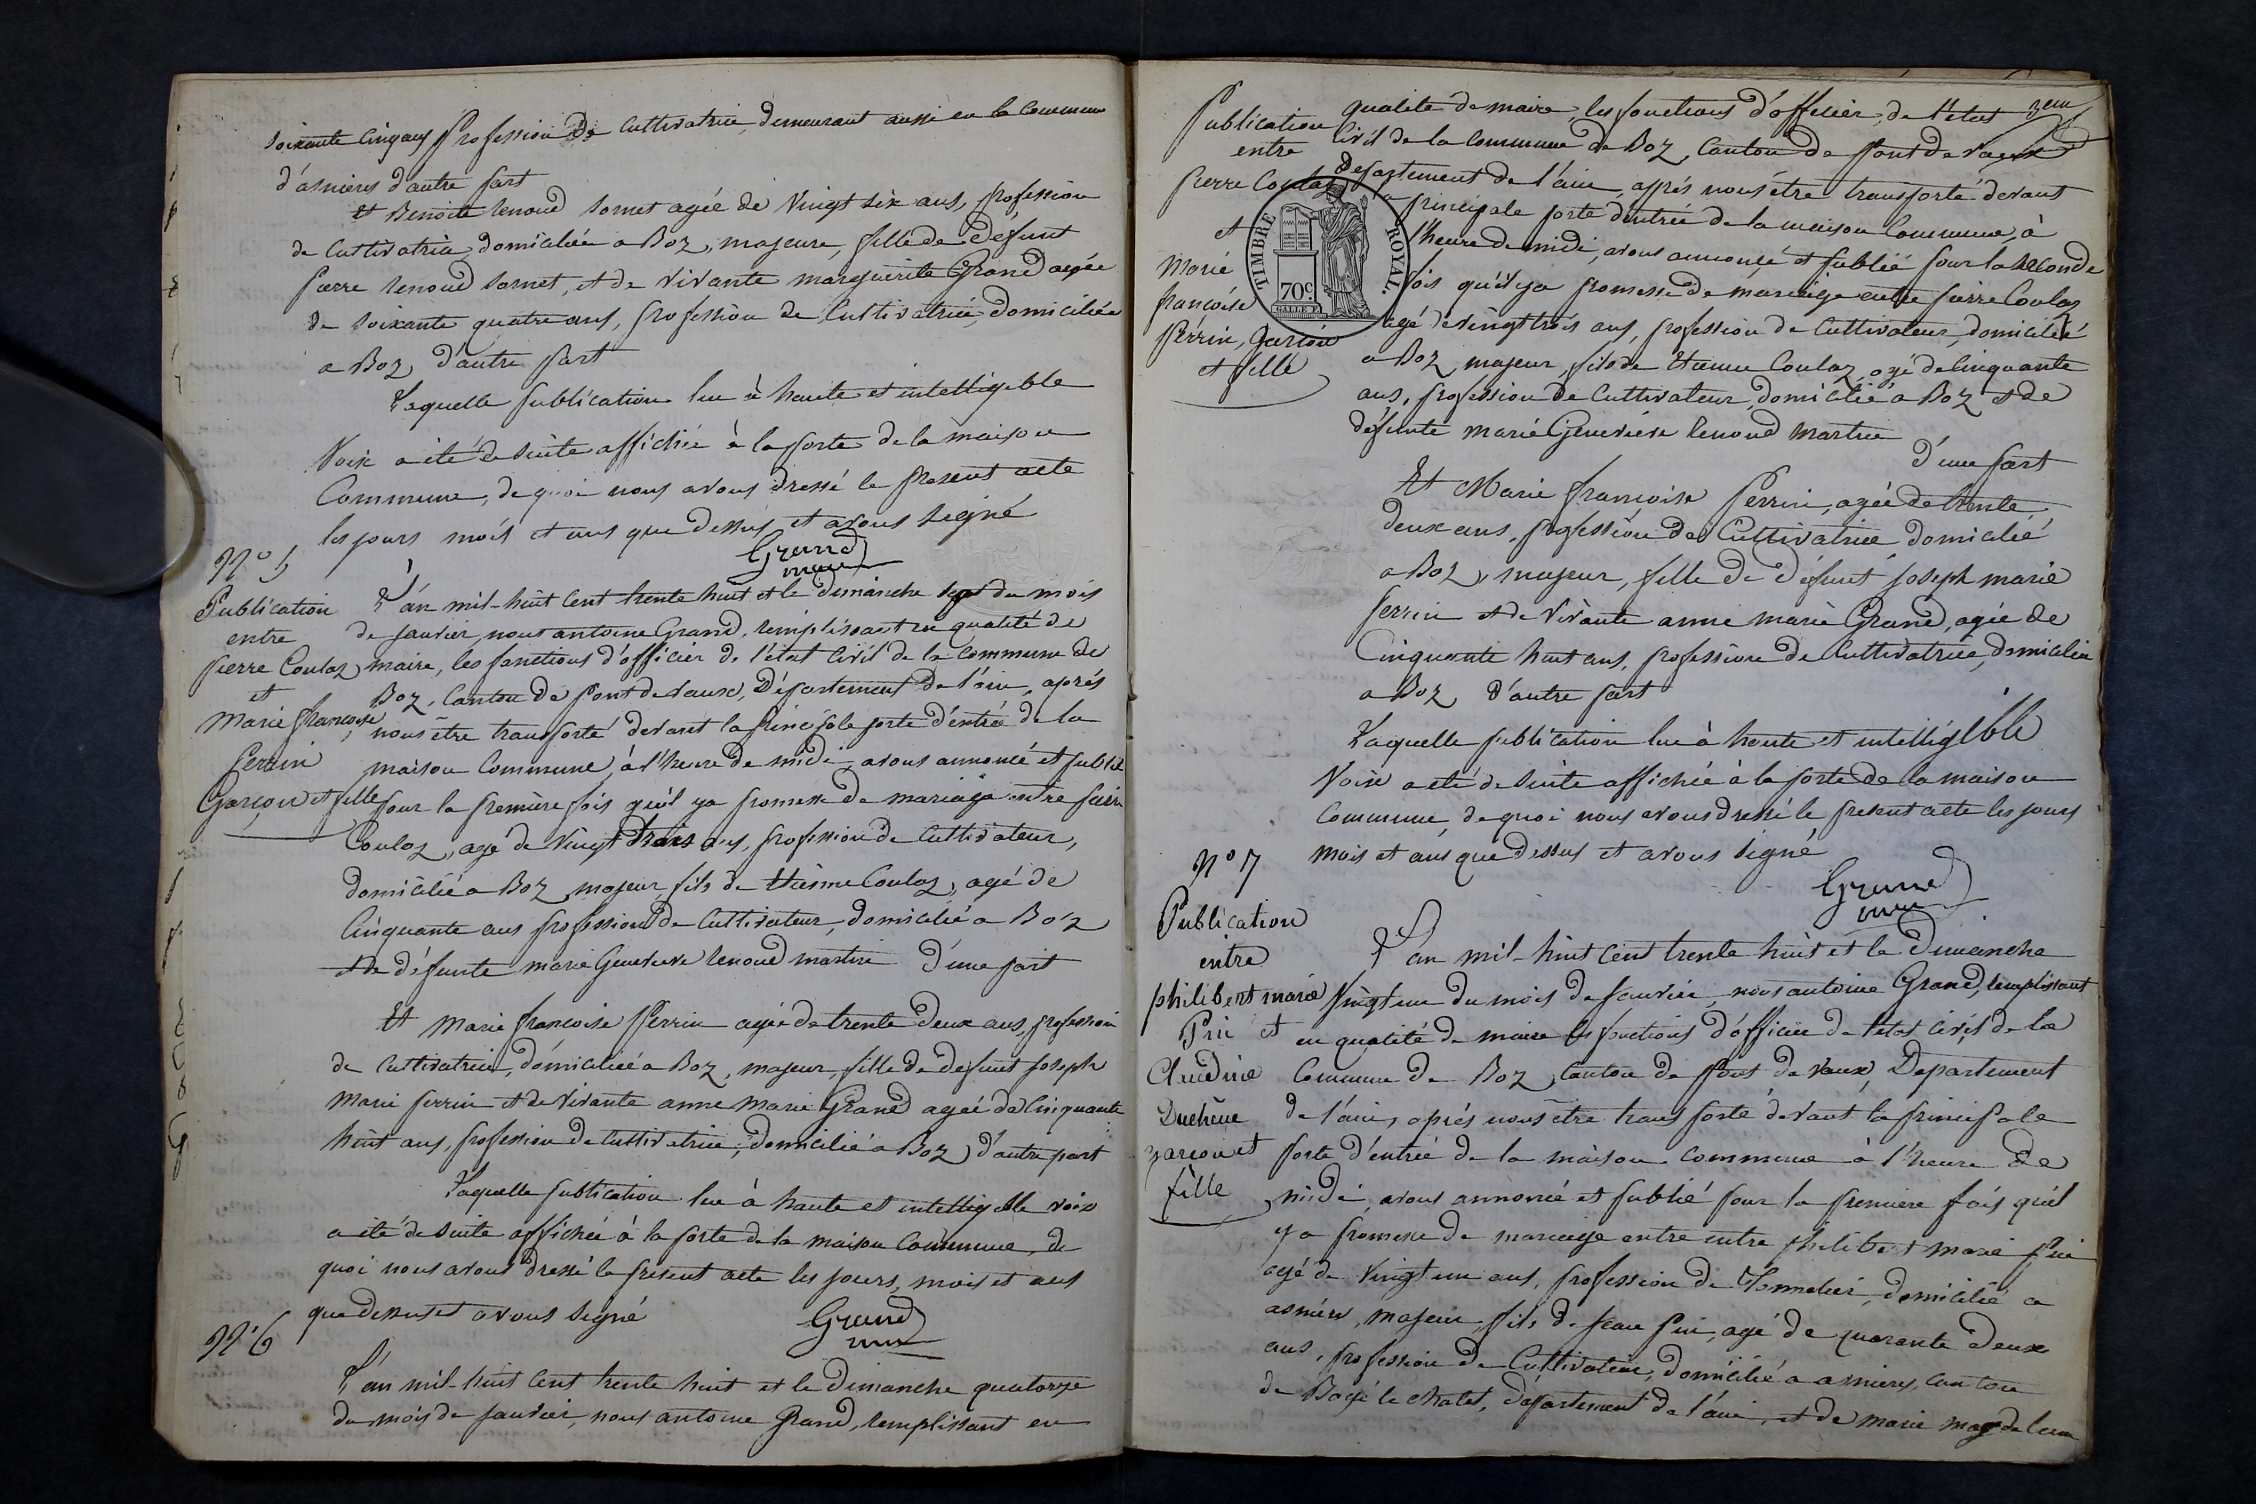 soixante cinq ans profession de cultivatrice, demeurant aussi en la commune
d'asnieres d'autre part
Et Benoite renoud sornet agée de vingt six ans, profession
de cultivatrice domiciliée a Boz, majeure, fille de défunt
pierre renoud sornet, et de vivante marguerite Grand agée
de soixante quatre ans, profession de cultivatrice, domiciliée
a Boz d'autre part
Laquelle publication lue à haute et intelligible
Voix a été de suite affichée à la porte de la maison
Commune, de quoi nous avons dressé le present acte
les jours mois et ans que dessus et avons signé
Grand
maire
N° 5
Publication
entre
pierre Coulaz
et
Marie françoise
Perrin
Garçon et fille
L'an mil-huit cent trente huit et le dimanche sept du mois
de janvier, nous antoine Grand, remplissant en qualité de
maire, les fonctions d'officier de l'état civil de la commune de
Boz, canton de pont de vaux, Département de l'ain, après
nous être transporté devant la principale porte d'entrée de la
maison Commune, à l'heure de midi, avons annoncé et publié
pour la première fois qu'il ya promesse de mariage entre pierre
Coulaz, agé de vingt trois ans, profession de cultivateur,
domicilié a Boz, majeur fils de Etienne Coulaz, agé de
Cinquante ans profession de cultivateur, domicilié a Boz
et de défunte marie Genevieve renoud martin d'une part
Et marie françoise Perrin agée de trente deux ans, profession
de cultivatrice, domiciliée a Boz, majeur, fille de defunt joseph
marie perrin et de vivante anne marie Grand agée de cinquante
huit ans, profession de cultivatrice, domicilié a Boz, d'autre part
Laquelle publication lue à haute et intelligible voix
a été de suite affichée à la porte de la maison Commune, de
quoi nous avons dressé le present acte les jours, mois et ans
que dessus et avons signé
Grand
maire
N° 6
L'an mil-huit cent trente huit et le dimanche quatorze
du mois de janvier, nous antoine Grand, remplissant en
Publication
entre
pierre Coulaz
et
Marie
françoise
Perrin, Garçon
et fille
qualité de maire, les fonctions d'officier, de l'état
Civil de la commune de Boz, Canton de pont de vaux
Departement de l'ain, après nous être transporté devant
principale porte d'entrée de la maison Commune, à
l'heure de midi, avons annoncé et publié pour la seconde
fois qu'il ya promesse de mariage entre pierre Coulaz
TIMBRE ROYAL.
70c.
agé de vingt trois ans, profession de cultivateur, domicilié
a Boz, majeur, fils de Etienne Coulaz, agé de cinquante
ans, profession de cultivateur, domicilié a Boz et de
défunte marie Genevieve renoud martin
d'une part
Et Marie françoise Perrin, agée de trente
deux ans, profession de Cultivatrice domicilié
a Boz, majeur, fille de défunt joseph marie
perrin et de vivante anne marie Grand, agée de
Cinquante huit ans, profession de cultivatrice, domiciliée
a Boz d'autre part
Laquelle publication lue à haute et intelligible
Voix a été de suite affichée à la porte de la maison
commune, de quoi nous avons dressé le present acte les jours
mois et ans que dessus et avons signé
Grand
maire
N° 7
Publication
entre
philibert marie
Pin et
Claudine
Duchêne
garçon et
fille
L'an mil-huit cent trente huit et le Dimanche
vingt un du mois de janvier, nous antoine Grand, remplissant
en qualité de maire les fonctions d'officier de l'état civil de la
Commune de Boz, canton de pont de vaux, Departement
de l'ain, après nous être transporté devant la principale
porte d'entrée de la maison commune à l'heure de
midi, avons annoncé et publié pour la premiere fois qu'il
ya promesse de mariage entre entre philibert marie pin
agé de vingt un ans, profession de Tonnelier, domicilié a
asnières, majeur, fils de jean pin, agé de quarante deux
ans, profession de cultivateur, domicilié a asnieres, canton
de Bagé le chatel, département de l'ain, et de marie magdelaine